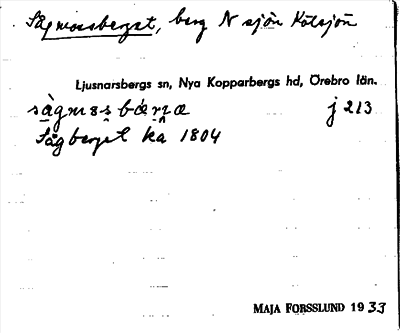 Sågmossberget, berg N sjön Kötsjön
Ljusnarsbergs sn, Nya Kopparbergs hd, Örebro län.
j 213
Sågberget ka 1804
MAJA FORSSLUND 1933